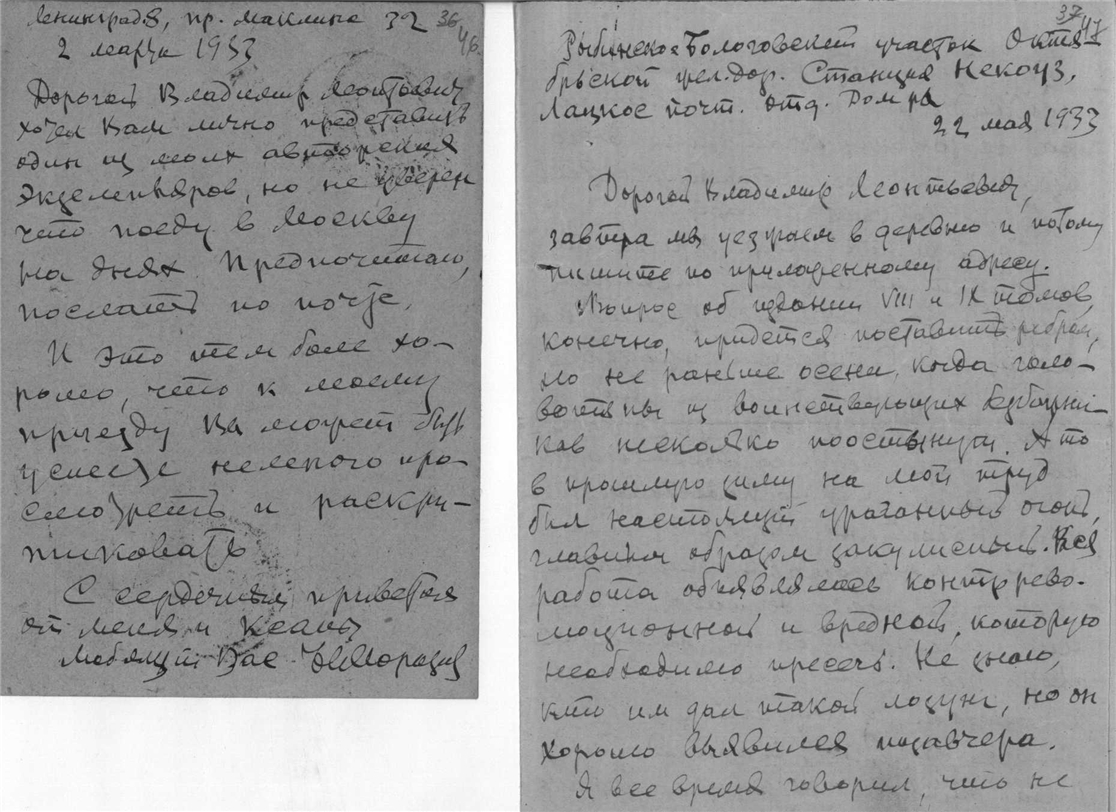 Ленинград, пр. Маклина 32
36
46
2 марта 1933
Дорогой Владимир Леонтьевич
хотел Вам лично представить
один из моих авторских
экземпляров, но не уверен
что поеду в Москву
на днях. Предпочитаю,
послать по почте.
И это тем более хо-
рошо, что к моему
приезду Вы может быть
успеете немного про-
смотреть и раскри-
тиковать
С сердечным приветом
от меня и Ксаны
Любящий Вас Н Морозов
37
47
Рыбинско-Бологовский участок Октя-
брьской жел. дор. Станция Некоуз,
Лацкое почт. отд. Дом
22 мая 1933
Дорогой Владимир Леонтьевич,
завтра мы уезжаем в деревню и потому
пишите по приложенному адресу.
Вопрос об издании VIII и IX томов,
конечно, придется поставить ребром,
но не раньше осени, когда голо-
вотяпы из воинствующих безбожни-
ков несколько поостынут. А то
в прошлую зиму на мой труд
был настоящий ураганный огонь,
главным образом закулисный. Вся
работа объявлялась контррево-
люционной и вредной, которую
необходимо пресечь. Не знаю,
кто им дал такой лозунг, но он
хорошо выявился позавчера.
Я все время говорил, что не